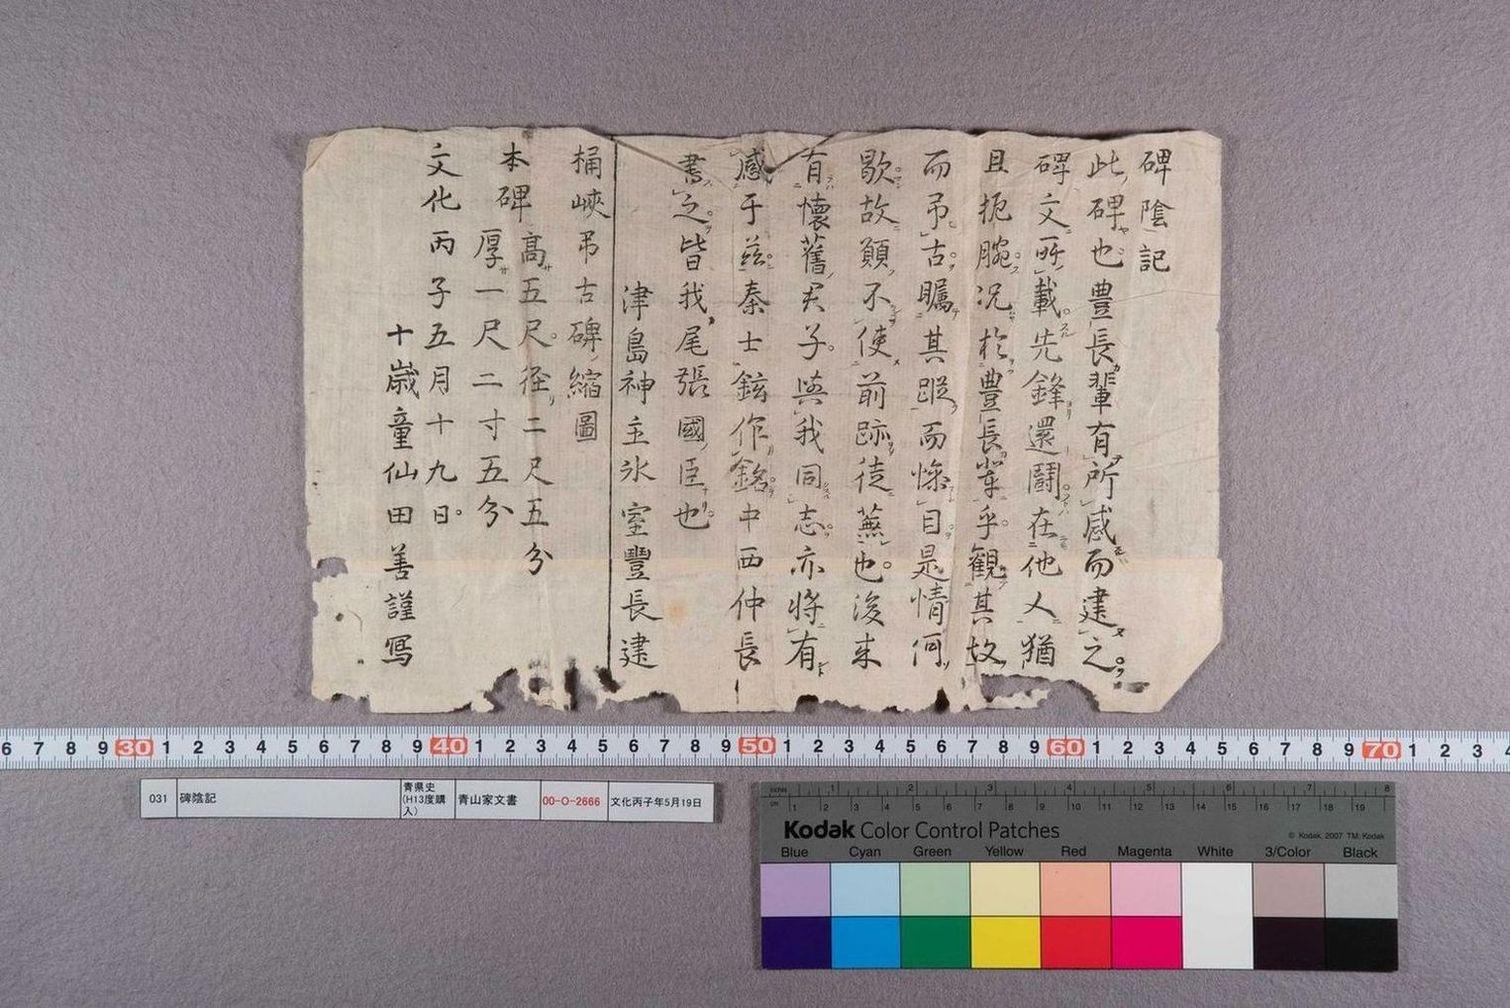 碑陰記
此碑也豊長輩有所感而建之
碑文所載先鋒還鬪在他人猶
且扼腕况於豊長輩乎観其故
而弔古矚其蹤而慘目是情何
歇故願不使前跡徒蕪也後来
有懐舊君子與我同志亦将有
感于茲秦士鉉作銘中西仲長
書之皆我尾張國臣也
津島神主氷室豐長建
桶峡弔古碑縮圖
本碑高五尺径二尺五分
厚一尺二寸五分
文化丙子五月十九日
十歳童仙田善謹寫
6 7 8 9 30 1 2 3 4 5 6 7 8 9 40 1 2 3 4 5 6 7 8 9 50 1 2 3 4 5 6 7 8 9 60 1 2 3 4 5 6 7 8 9 70 1 2 3 4
031 碑陰記 青県史(H13度購入) 青山家文書 00-O-2666 文化丙子年5月19日
Kodak Color Control Patches
© Kodak, 2007 TM: Kodak
Blue Cyan Green Yellow Red Magenta White 3/Color Black